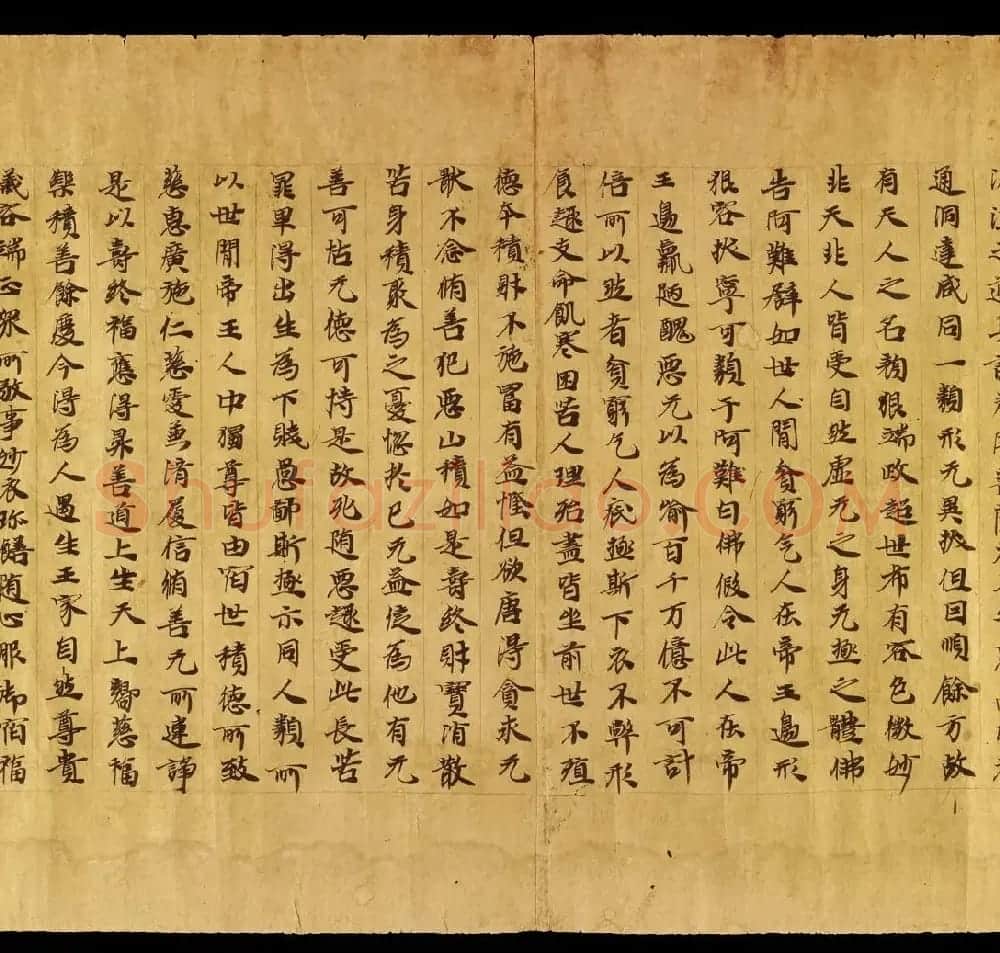 通洞達咸同一類形无異狀但因順餘方故
有天人之名顏貌端政超世希有容色微妙
非天非人皆受自然虛无之身无極之體佛
告阿難辟如世人間貧窮乞人在帝王邊形
貌容狀寧可類乎阿難白佛假令此人在帝
王邊羸陋醜惡无以為喻百千万億不可計
倍所以然者貧窮乞人底極斯下衣不弊形
食趣支命飢寒困苦人理殆盡皆坐前世不殖
德本積財不施富有益慳但欲唐得貪求无
猒不念脩善犯惡山積如是壽終財寶消散
苦身積聚為之憂惱於己无益徒為他有无
善可怙无德可恃是故死墮惡趣受此長苦
罪畢得出生為下賤愚鄙斯極示同人類所
以世間帝王人中獨尊皆由宿世積德所致
慈惠廣施仁慈愛兼濟履信脩善无所違諍
是以壽終福應得昇善道上生天上嚮慈福
樂積善餘慶今得為人遇生王家自然尊貴
儀容端正眾所敬事妙衣珍饍隨心服御宿福
Shufaziliao.COM